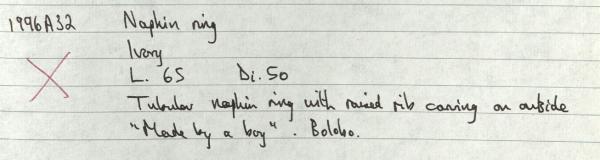 1996A32 Napkin ring
Ivory
L. 65 Di. 50
Tubular napkin ring with raised rib carving on outside
"Made by a boy". Bolobo.